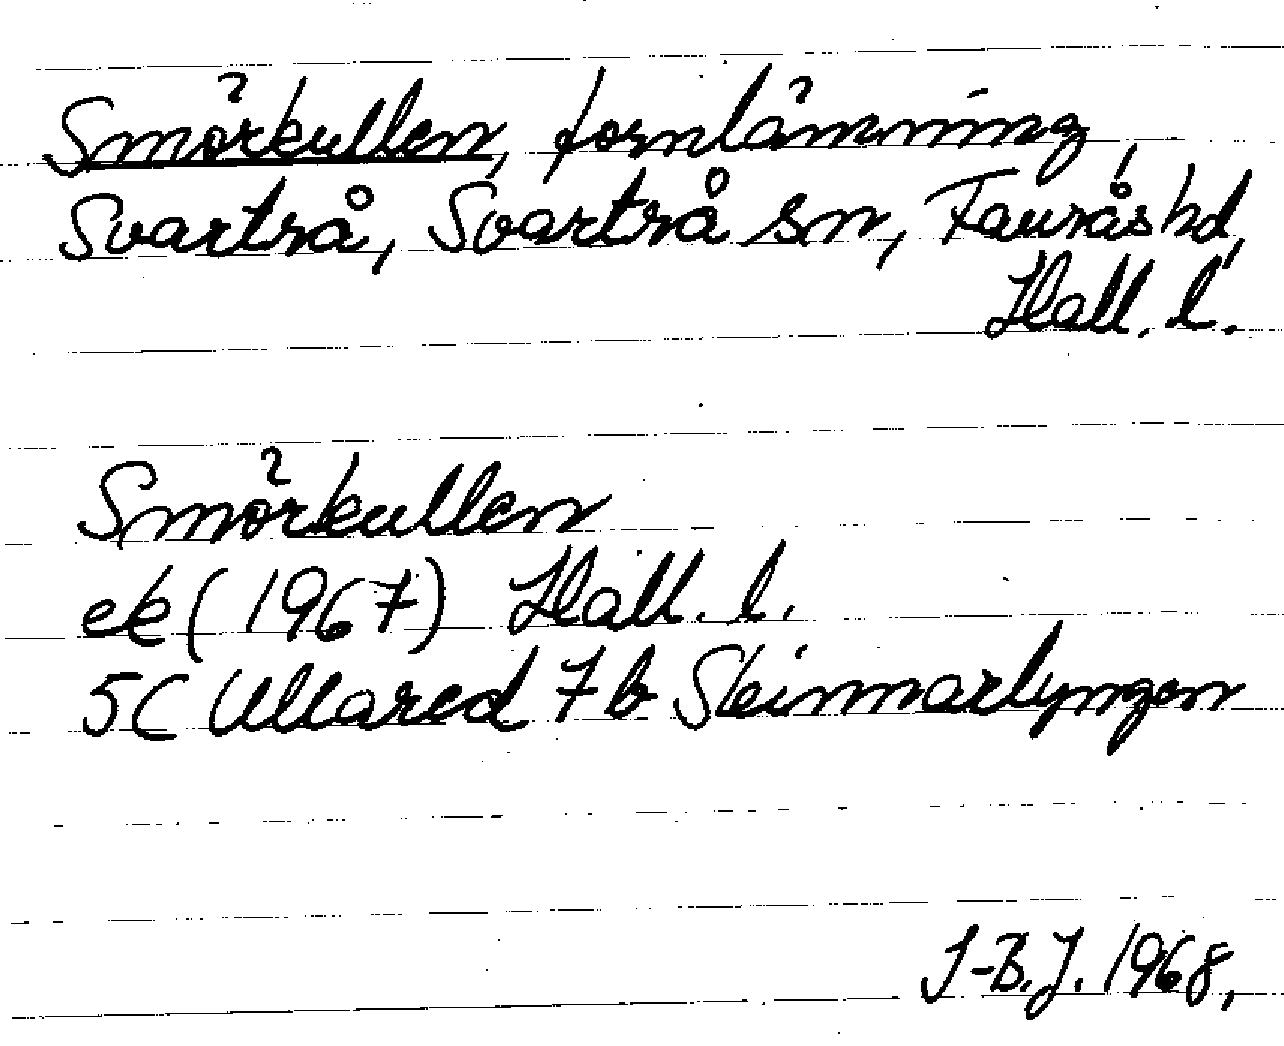 Smörkullen, fornlämning,
Svartrå, Svartrå sn, Faurås hd,
Hall. l.
Smörkullen
ek (1967) Hall. l.
5C Ullared 7 b Steinmarlyngen
J-B.J. 1968,